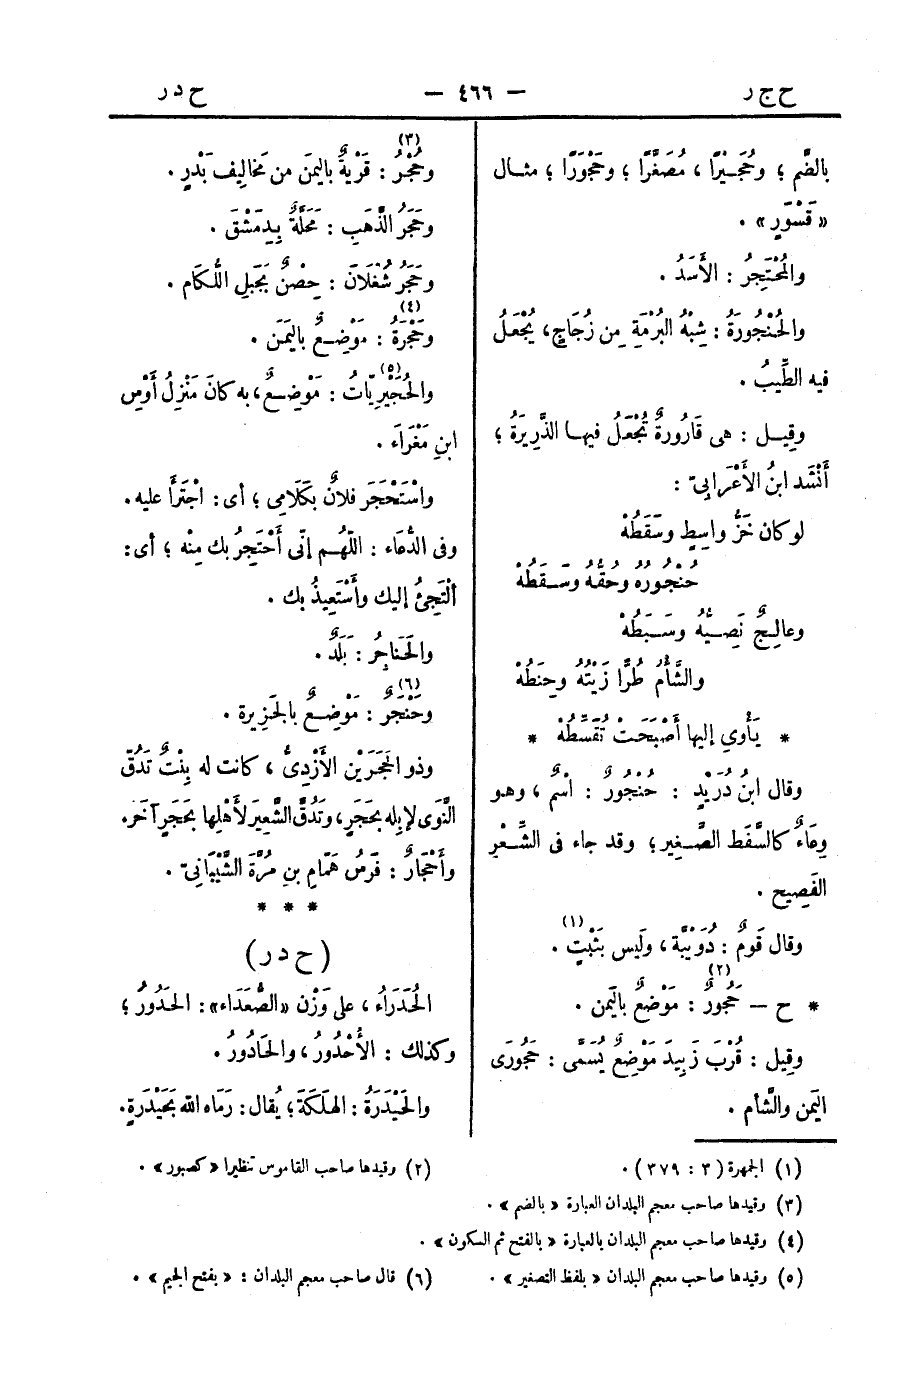 ح ج ر — ٤٦٦ — ح د ر
بالضَّم ؛ وحُجَـيْرًا ، مُصَغَّرًا ؛ وحَجْوَرًا ؛ مثـال
« قَسْوَرٍ » .
والمُحْتَجِرُ : الأَسَدُ .
والحُنْجُورَةُ : شِبْهُ البُرْمَةِ مِن زُجَاجٍ، يُجْعَلُ
فيه الطِّيبُ .
وقِيـل : هى قَارُورَةٌ تُجْعَلُ فيهـا الذَّرِيرَةُ ؛
أَنْشَد ابنُ الأَعْرَابىّ :
لو كان خَزُّ واسِطٍ وسَقَطُهْ
حُنْجُورُه وحُقُّه وسَـفَطُهْ
وعالِـجٌ نَصِـيُّهُ وسَـبَطُهْ
والشَّأْمُ طُرًّا زَيْتُهُ وحِنَطُهْ
* يَأْوِى إليها أَصْبَحَتْ تُقَسِّطُهْ *
وقال ابنُ دُرَيْدٍ : حُنْجُورٌ : اسْمٌ ، وهـو
وِعَاءٌ كالسَّفَط الصَّـغِير ؛ وقد جاء فى الشِّـعْرِ
الفَصِيح .
وقال قَومٌ : دُوَيْبَّة ، ولَيس بثَبْتٍ (١) .
* ح — حَجُورٌ (٢) : مَوْضعٌ باليَمن .
وقِيل : قُرْبَ زَبِيدَ مَوْضِعٌ يُسَمَّى : حَجُورَى
اليَمن والشَّأم .
وحُجْرُ (٣) : قَرْيةٌ باليمَن من مَخَالِيف بَدْرٍ .
وحَجَرُ الذَّهَبِ : مَحَلَّةٌ بِـدِمَشْقَ .
وحَجَرُ شُغْلَانَ : حِصْنٌ بَجَبلِ اللُّكَام .
وحَجْرَةُ (٤) : مَوْضِـعٌ باليَمَن .
والحُجَيْرِيَّاتُ (٥) : مَوْضِـعٌ، به كانَ مَنْزِلُ أَوْسِ
ابنِ مَغْرَاءَ .
واسْتَحْجَرَ فلانٌ بكَلَامِى ؛ أى : اجْتَرَأَ عليه .
وفى الدُّعَاء : اللّهُـم إنّى أَحْتَجِرُ بك مِنْه ؛ أى :
أَلْتَجِئُ إليك وأَسْتَعِيذُ بك .
والحَنَاجِرُ : بَلَدٌ .
وحَنْجَرٌ (٦) : مَوْضِـعٌ بالجَزِيرة .
وذو الحَجَرَيْن الأَزْدِىُّ ، كانت له بِنْتٌ تَدُقّ
النَّوَى لإبِله بحَجَرٍ، وتَدُقُّ الشَّعِيرَ لأَهْلِها بحَجَرٍ آخَر.
وأَحْجَارٌ : فَرَسُ هَمّامِ بنِ مُرَّةَ الشَّيْبَانىّ .
* * *
( ح د ر )
الحُدَرَاء ، على وَزْن «الصُّعَدَاء» : الحَدُورُ ؛
وكذلك : الأُحْدُورُ ، والحَادُورُ .
والحَيْدَرَةُ : الهَلَكَةُ ؛ يُقال : رَمَاه الله بَحَيْدَرَةٍ.
(١) الجمهرة (٣ : ٣٧٩) .
(٢) وقيدها صاحب القاموس تنظيرا « كصبور » .
(٣) وقيدها صاحب معجم البلدان العبارة « بالضم » .
(٤) وقيدها صاحب معجم البلدان بالعبارة « بالفتح ثم السكون » .
(٥) وقيدها صاحب معجم البلدان « بلفظ التصغير » .
(٦) قال صاحب معجم البلدان : « بفتح الجيم » .